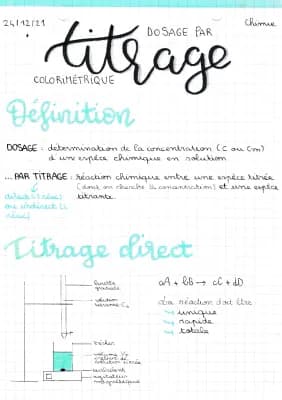 24/12/21
Chimie
DOSAGE PAR
titrage
COLORIMÉTRIQUE
Définition
DOSAGE : détermination de la concentration (C ou Cm)
d'une espèce chimique en solution
... PAR TITRAGE : réaction chimique entre une espèce titrée
(dont on cherche la concentration) et une espèce
titrante.
direct (1 réac)
ou indirect (2
réac)
Titrage direct
burette
graduée
solution
titrante C
aA + bB → cC + dD
La réaction doit être
→ unique
→ rapide
→ totale
bécher
volume
solution titrée
agitateur
magnétique